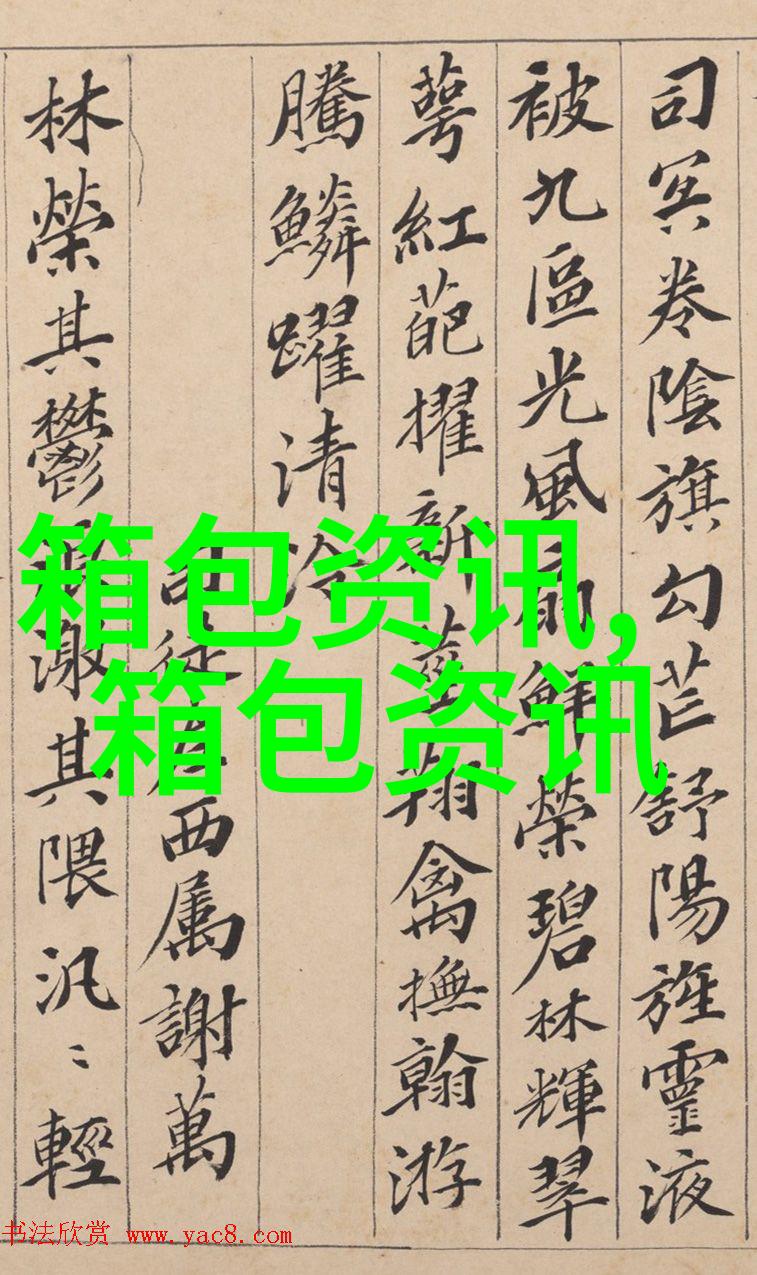 司冥卷陰旗勾芒舒陽旌靈液
被九區光風扇鮮榮碧林輝翠
萼紅葩擢新莖翔禽撫翰游
騰鱗躍清泠
司徒左西属謝萬
林榮其鬱浪激其隈汎〻輕
箱包资讯,
箱包资讯
书法欣赏 www.yac8.com